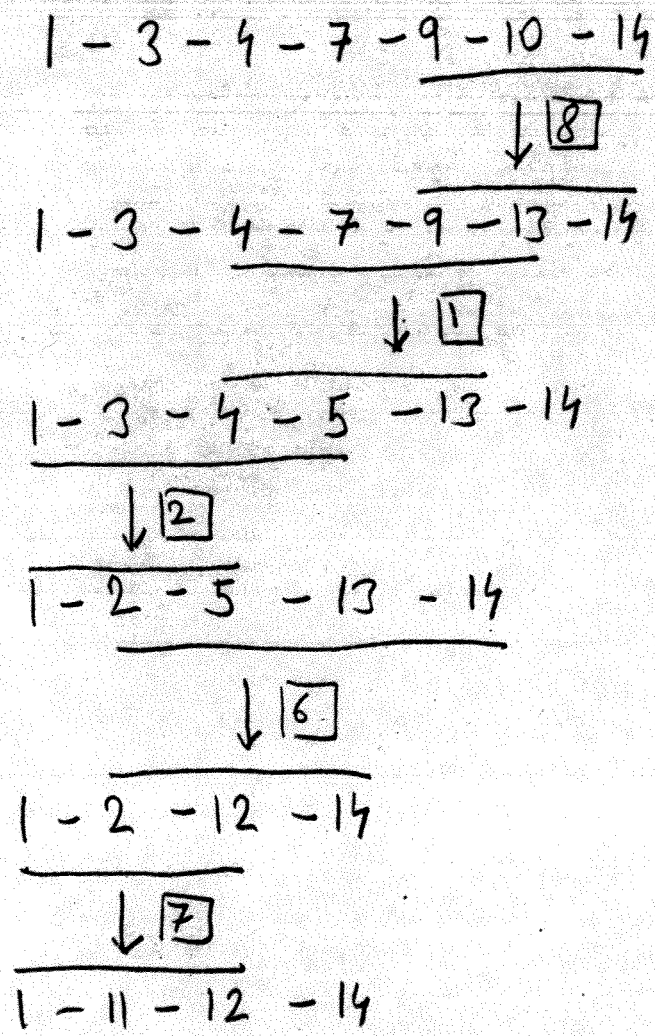 1 - 3 - 4 - 7 - 9 - 10 - 14
↓ 8
1 - 3 - 4 - 7 - 9 - 13 - 14
↓ 1
1 - 3 - 4 - 5 - 13 - 14
↓ 2
1 - 2 - 5 - 13 - 14
↓ 6
1 - 2 - 12 - 14
↓ 7
1 - 11 - 12 - 14